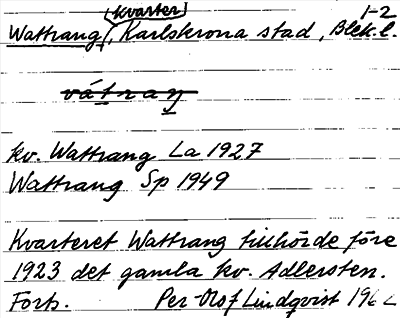 kvarter 1-2
Wattrang, Karlskrona stad, Blek.l.
vátraŋ
kv. Wattrang La 1927
Wattrang Sp 1949
Kvarteret Wattrang tillhörde före
1923 det gamla kv. Adlersten.
Forts. Per Olof Lindqvist